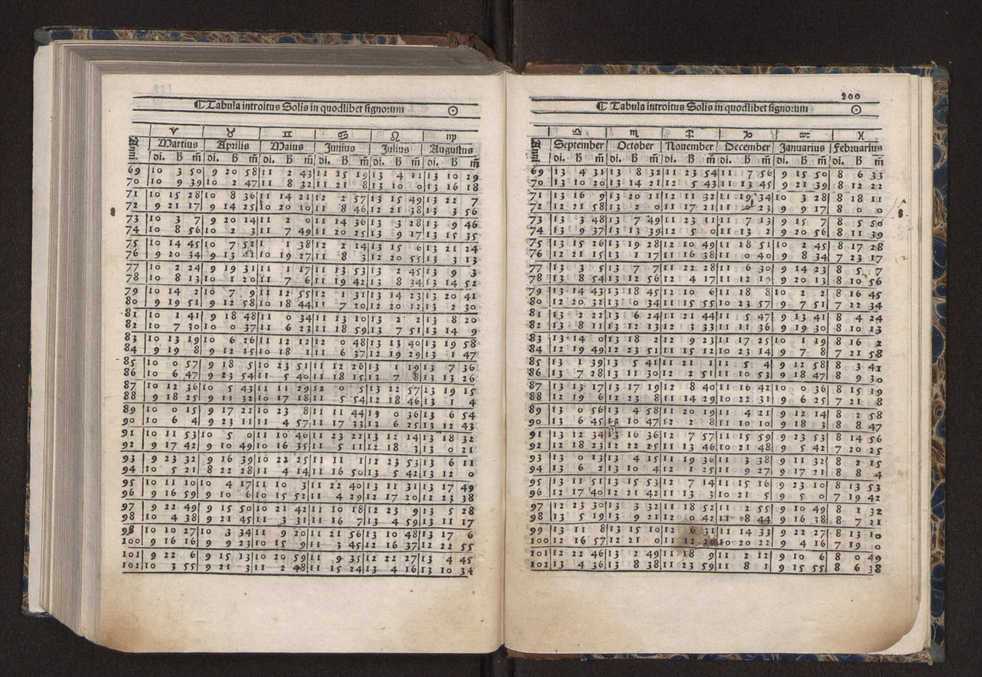 ☾ Tabula introitus Solis in quodlibet signorum ☉
♈ ♉ ♊ ♋ ♌ ♍
Anni Martius Aprilis Maius Junius Julius Augustus
di. H m̄ di. H m̄ di. H m̄ di. H m̄ di. H m̄ di. H m̄
69 10 3 50 9 20 58 11 2 43 11 15 19 13 4 11 13 10 29
70 10 9 39 10 2 47 11 8 32 11 21 8 13 10 0 13 16 18
71 10 15 28 10 8 36 11 14 21 12 2 57 13 15 49 13 22 7
72 9 21 17 9 14 25 10 20 10 11 8 46 12 21 38 13 3 56
73 10 3 7 9 20 14 11 2 0 11 14 36 13 3 28 13 9 46
74 10 8 56 10 2 3 11 7 49 11 20 25 13 9 17 13 15 35
75 10 14 45 10 7 52 11 1 38 12 2 14 13 15 6 13 21 24
76 9 20 34 9 13 10 19 27 11 8 3 12 20 55 13 3 13
77 10 2 24 9 19 31 11 1 17 11 13 53 13 2 45 13 9 3
78 10 8 13 10 1 20 11 7 6 11 19 42 13 8 34 13 14 52
79 10 14 2 10 7 9 11 12 55 12 1 31 13 14 23 13 20 41
80 9 19 51 9 12 58 10 18 44 11 7 20 12 20 12 13 2 30
81 10 1 41 9 18 48 11 0 34 11 13 10 13 2 2 13 8 20
82 10 7 30 10 0 37 11 6 23 11 18 59 13 7 51 13 14 9
83 10 13 19 10 6 26 11 12 12 12 0 48 13 13 40 13 19 58
84 9 19 8 9 12 15 10 18 1 11 6 37 12 19 29 13 1 47
85 10 0 57 9 18 5 10 23 51 11 12 26 13 1 19 13 7 36
86 10 6 47 9 23 54 11 5 40 11 18 15 13 7 8 13 13 26
87 10 12 36 10 5 43 11 11 29 12 0 5 13 12 57 13 19 15
88 9 18 25 9 11 32 10 17 18 11 5 54 12 18 46 13 1 4
89 10 0 15 9 17 22 10 23 8 11 11 44 13 0 36 13 6 54
90 10 6 4 9 23 11 11 4 57 11 17 33 13 6 25 13 12 43
91 10 11 53 10 5 0 11 10 46 11 23 22 13 12 14 13 18 32
92 9 17 42 9 10 49 10 16 35 11 5 11 12 18 3 13 0 21
93 9 23 32 9 16 39 10 22 25 11 11 1 12 23 53 13 6 11
94 10 5 21 8 22 28 11 4 14 11 16 50 13 5 42 13 12 0
95 10 11 10 10 4 17 11 10 3 11 22 40 13 11 31 13 17 49
96 9 16 59 9 10 6 10 15 52 11 4 29 12 17 20 12 23 38
97 9 22 49 9 15 50 10 21 42 11 10 18 12 23 9 13 5 28
98 10 4 38 9 21 45 11 3 31 11 16 7 13 4 59 13 11 17
99 10 10 27 10 3 34 11 9 20 11 21 56 13 10 48 13 17 6
100 9 16 16 9 9 23 10 15 9 11 3 45 12 16 37 12 22 55
101 9 22 6 9 15 13 10 20 59 11 9 35 12 22 27 13 4 45
102 10 3 55 9 21 3 11 2 48 11 15 24 13 4 16 13 10 34
200
☾ Tabula introitus Solis in quodlibet signorum ☉
♎ ♏ ♐ ♑ ♒ ♓
Anni September October November December Januarius Februarius
di. H m̄ di. H m̄ di. H m̄ di. H m̄ di. H m̄ di. H m̄
69 13 4 31 13 8 32 11 23 54 11 7 56 9 15 50 8 6 33
70 13 10 20 13 14 21 12 5 43 11 13 45 9 21 39 8 12 22
71 13 16 9 13 20 11 12 11 32 11 19 34 10 3 28 8 18 11
72 12 21 58 13 2 0 11 17 21 11 0 23 9 9 17 8 0 0
73 13 3 48 13 7 49 11 23 11 11 7 13 9 15 7 8 5 50
74 13 9 37 13 13 39 12 5 0 11 13 2 9 20 56 8 11 39
75 13 15 26 13 19 28 12 10 49 11 18 51 10 2 45 8 17 28
76 12 21 15 13 1 17 11 16 38 11 0 40 9 8 34 7 23 17
77 13 3 5 13 7 7 11 22 28 11 6 30 9 14 23 8 5 7
78 13 8 54 13 12 56 12 4 17 11 12 19 9 20 13 8 10 56
79 13 14 43 13 18 45 12 10 6 11 18 8 10 2 2 8 16 45
80 12 20 32 13 0 34 11 15 55 10 23 57 9 7 51 7 22 34
81 13 2 22 13 6 24 11 21 44 11 5 47 9 13 41 8 4 24
82 13 8 11 13 12 13 12 3 33 11 11 36 9 19 30 8 10 13
83 13 14 0 13 18 2 12 9 23 11 17 25 10 1 19 8 16 2
84 12 19 49 12 23 51 11 15 12 10 23 14 9 7 8 7 21 58
85 13 1 39 13 5 41 11 21 1 11 5 4 9 12 58 8 3 41
86 13 7 28 13 11 30 12 2 51 11 10 53 9 18 47 8 9 30
87 13 13 17 13 17 19 12 8 40 11 16 42 10 0 36 8 15 19
88 12 19 6 12 23 8 11 14 29 10 22 31 9 6 25 7 21 8
89 13 0 56 13 4 58 11 20 19 11 4 21 9 12 14 8 2 58
90 13 6 45 13 10 47 12 2 8 11 10 10 9 18 3 8 8 47
91 13 12 34 13 16 36 12 7 57 11 15 59 9 23 53 8 14 56
92 12 18 23 12 22 25 11 13 46 10 21 48 9 5 42 7 20 25
93 13 0 13 13 4 15 11 19 36 11 3 38 9 11 32 8 2 15
94 13 6 2 13 10 4 12 1 25 11 9 27 9 17 21 8 8 4
95 13 11 51 13 15 53 12 7 14 11 15 16 9 23 10 8 13 53
96 12 17 40 12 21 42 11 13 3 10 21 5 9 5 0 7 19 42
97 12 23 30 13 3 32 11 18 52 11 2 55 9 10 49 8 1 32
98 13 5 19 13 9 21 12 0 42 11 8 44 9 16 38 8 7 21
99 13 11 8 13 15 10 12 6 31 11 14 33 9 22 27 8 13 10
100 12 16 57 12 21 0 11 12 20 10 20 22 9 4 16 7 19 0
101 12 22 46 13 2 49 11 18 9 11 2 12 9 10 6 8 0 49
102 13 4 36 13 8 38 11 23 59 11 8 1 9 15 55 8 6 38